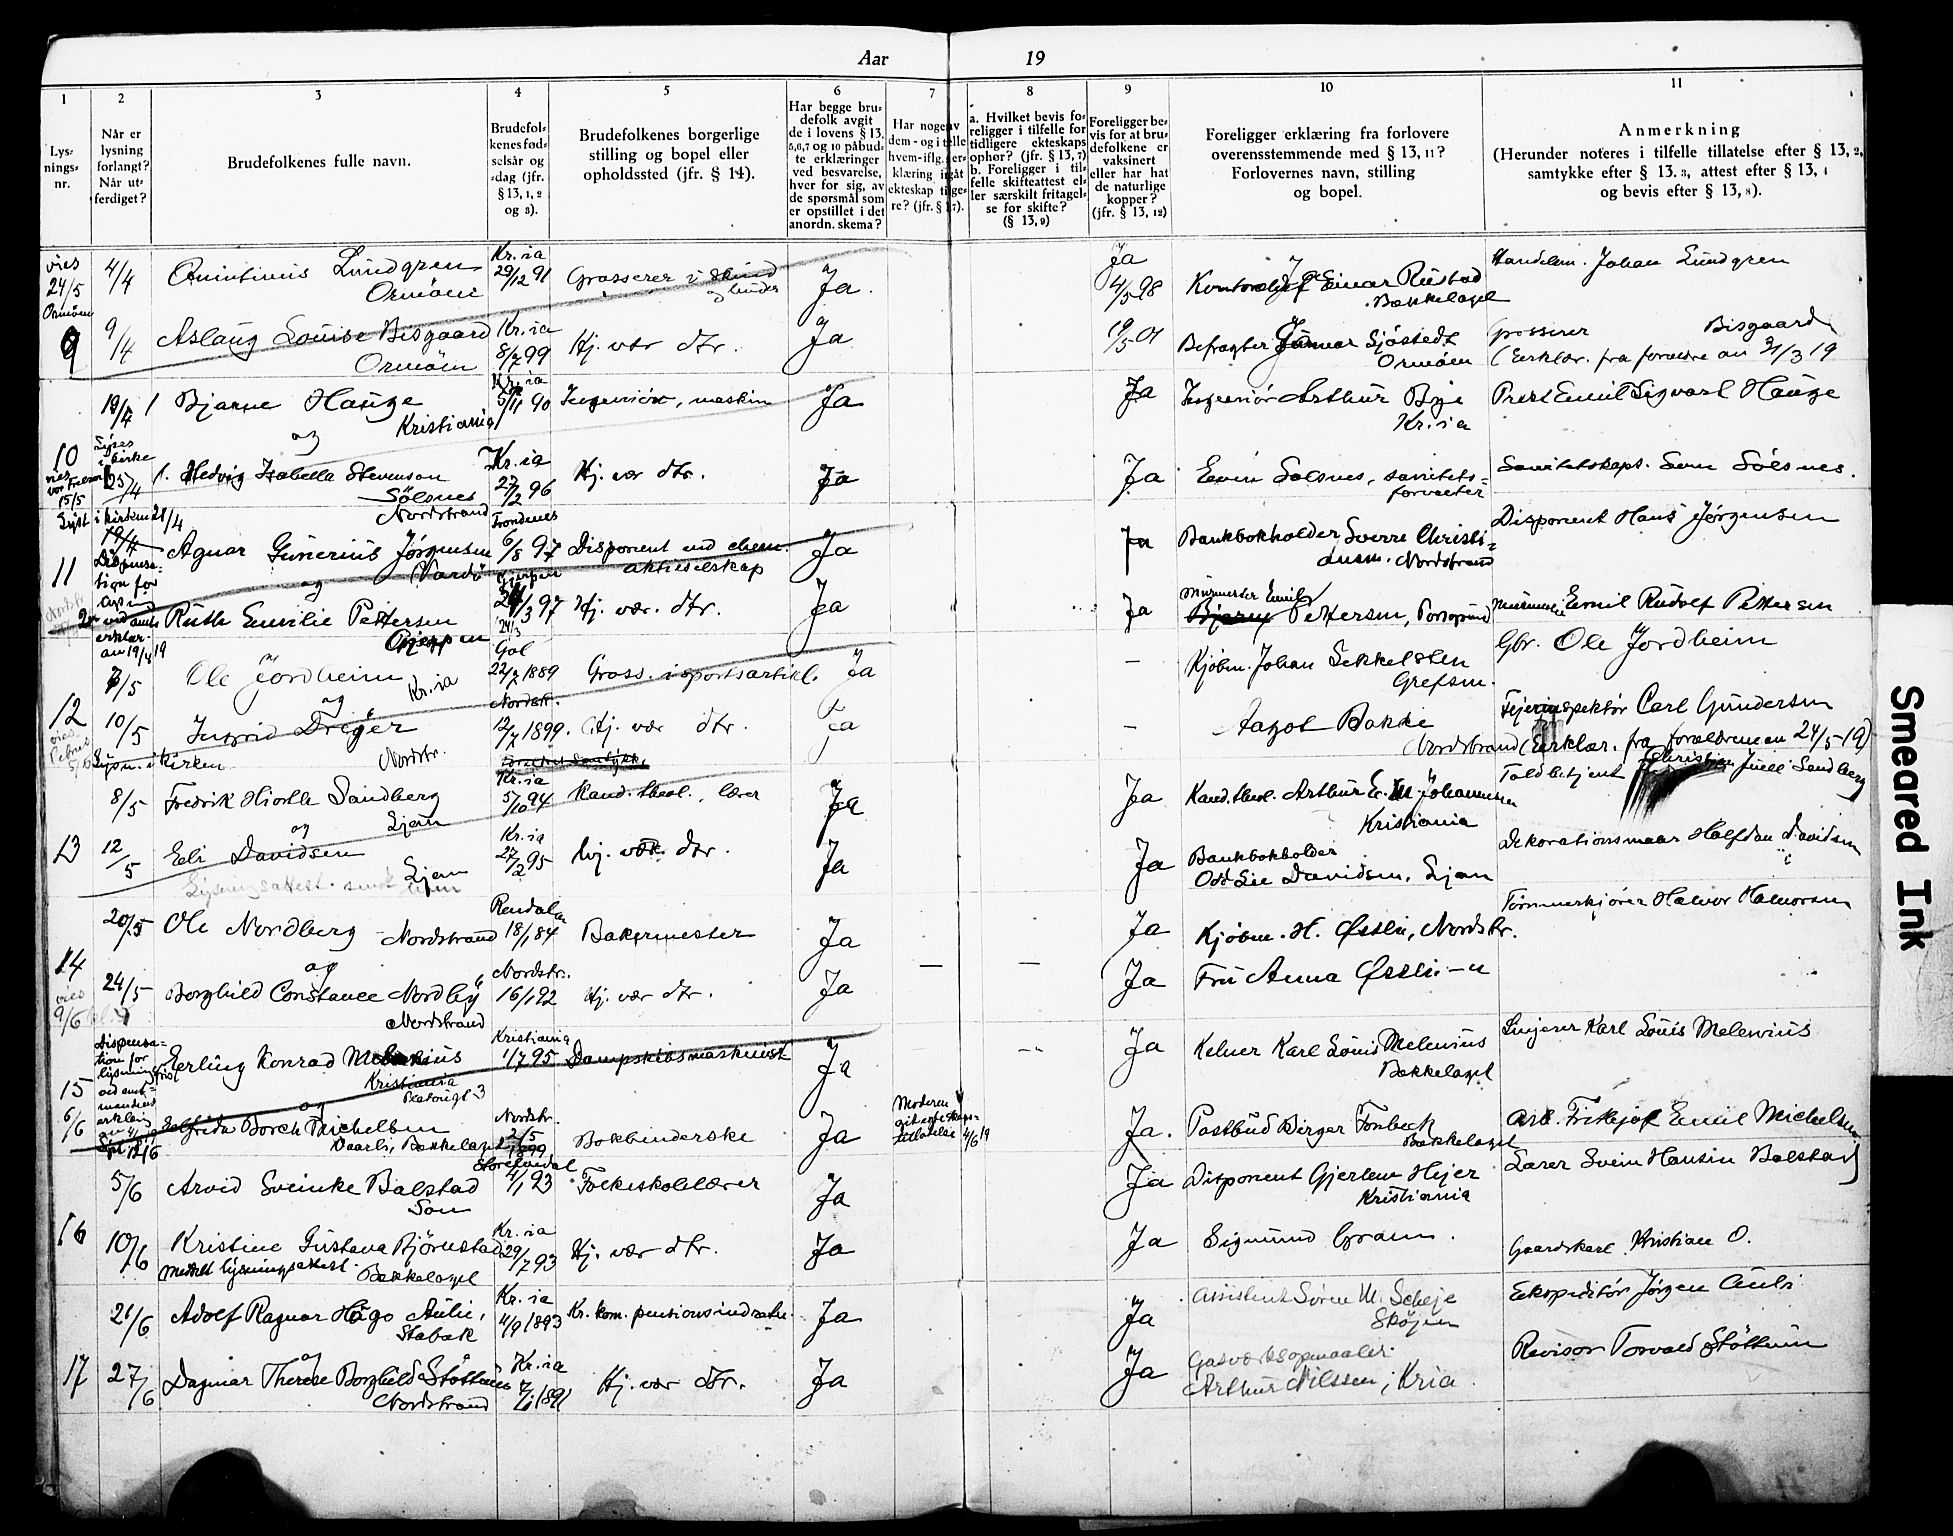 Aar 19
1 2 3 4 5 6 7 8 9 10 11
Lys-
nings-
nr.
Når er
lysning
forlangt?
Når ut-
ferdiget?
Brudefolkenes fulle navn.
Brudefol-
kenes fød-
selsår og
-dag (jfr.
§ 13, 1, 2
og 3).
Brudefolkenes borgerlige
stilling og bopel eller
opholdssted (jfr. § 14).
Har begge bru-
defolk avgit
de i lovens § 13,
5,6,7 og 10 påbud-
te erklæringer
ved besvarelse,
hver for sig, av
de spørsmål som
er opstillet i det
anordn. skema?
Har nogen av
dem - og i tilfelle
hvem - iflg. er-
klæring ingåt
ekteskap tidlige-
re? (jfr. § 17).
a. Hvilket bevis fo-
religger i tilfelle for
tidligere ekteskaps
ophør? (jfr. § 13, 7)
b. Foreligger i til-
felle skifteattest el-
ler særskilt fritagel-
se for skifte?
(§ 13, 9)
Foreligger be-
vis for at bru-
defolkene er
vaksinert
eller har hat
de naturlige
kopper?
(jfr. § 13, 12)
Foreligger erklæring fra forlovere
overensstemmende med § 13, 11?
Forlovernes navn, stilling
og bopel.
Anmerkning
(Herunder noteres i tilfelle tillatelse efter § 13, 2,
samtykke efter § 13, 3, attest efter § 13, 4
og bevis efter § 13, 8).
vies
24/5
Ormöen
4/4 Lundgren
Ormöen
Kr.ia
29/12 91
Grosserer i
Ja
Ja
4/5 98
Einar Rustad
Bekkelaget
Handelsm. Johan Lundgren
9
9/4 Aslaug Louise Bisgaard
Ormöen
Kr.ia
8/7 99
Hj. vær dtr.
Ja
19/5 01
Befragter Sjöstedt
Ormöen
Grosserer Bisgaard
(Eerklær. fra forældre an 31/3 19
19/4 Bjarne Hauge
Kristiania
og
Kr.ia
5/11 90
Ingeniör, maskin
Ja
Ja
Ingeniör Arthur Bye
Kr.ia
Prest Emil Sigvart Hauge
10
vies
15/5
Lyses
i kirke
25/4
Hedvig Isabella Stevenson
Sölsnes
Nordstrand
Kr.ia
27/2 96
Hj. vær dtr.
Ja
Ja
Sölsnes, sanitets-
forvalter
Sanitetskapt. Sölsnes.
11
Lyst i kirken 21/4
Dispensa-
tion for
Agnar Gunerius Jörgensen
Vardö
og
Trondenes
6/8 97
Disponent ved chem.
aktieselskap
Ja
Ja
Bankbokholder Sverre Christi-
ansen. Nordstrand
Disponent Hans Jörgensen
erklær.
an 19/4 19
Ruth Emilie Pettersen
Gjerpen
Gjerpen
24/3 97
Hj. vær. dtr.
Ja
Ja
Murmester Emil
Pettersen, Porsgrund
Emil Rudolf Pettersen
12
7/5 Ole Jordheim
Kr.ia
og
Gol
22/7 1889
Gross. i sportsartikl.
Ja
–
Kjöbm. Johan Sekkelsten
Grefsen.
Gbr. Ole Jordheim
10/5 Ingrid Dreyer
Nordstr.
Lysn. i kirken
Nordst.
12/7 1899.
Hj. vær dtr.
Ja
–
Aagot Bakke
Nordstrand
Carl Gundersen
(Eerklær. fra forældrene an 24/5-19)
13
8/5 Fredrik Hiorth Sandberg
og
Ljan
Kr.ia
5/10 94
Kand. theol., lærer
Ja
Ja
Kand. theol. Arthur E. M. Johannessen
Kristiania
Toldbetjent Christian Juell Sandberg
12/5 Davidsen
Ljan
Kr.ia
27/2 95
Hj. vær. dtr.
Ja
Ja
Bankbokholder
Odd Lie Davidsen, Ljan
Halfdan Davidsen
14
vies
9/6
20/5 Ole Nordberg - Nordstrand
og
Rendalen
18/1 84
Bakermester
Ja
Ja
Kjöbm. H. Østli, Nordstr.
Tömmerkjörer Halvor Halvorsen
24/5 Borghild Constance Nordby
Nordstrand
Nordstr.
16/1 92
Hj. vær dtr.
Ja
–
–
Ja
Fru Anna Østli
15
6/6
Dispensa-
tion for
lysning
Erling Konrad Melenius
Kristiania
og
Kristiania
1/7 95
Dampskibsmaskinist
Ja
Ja
Kelner Karl Louis Melenius
Bekkelaget
Karl Louis Melenius
Elfrida Borch Michelsen
Vaarli, Bekkelaget
Nordstr.
1899
Bokbinderske
Ja
Moderen
git egteskaps-
tillatelse 4/6 19
Ja.
Postbud Birger Fosbeck
Bekkelaget
Arb. Fritjof Emil Michelsen
16
5/6 Arvid Sveinke Bolstad
Son
Storelvedal
4/1 93
Folkeskolelærer
Ja
Ja
Disponent Gjertsen Hejer
Kristiania
Lærer Svein Hansen Bolstad
10/6 Kristine Gustava Björnstad
Meddelt lysningsattest.
Bekkelaget
Kr.ia
29/7 93
Hj. vær dtr.
Ja
Ja
Sigmund Gram.
Gaardskarl Kristian O.
17
21/6 Adolf Ragnar Hugo Aulie,
Stabæk
og
Kr.ia
4/9 1893
Kr. kom. pensionsindretn.
Ja
Ja
Assistent Sören M. Scheje
Sköjen
Ekspeditör Jörgen Aulie
27/6 Dagmar Therese Borghild Stöttum
Nordstrand
Kr.ia
7/1 1891
Hj. vær dtr.
Ja
Ja
Gasværksopmaaler
Arthur Nilssen, Kria.
Revisor Torvald Stöttum
Smeared Ink